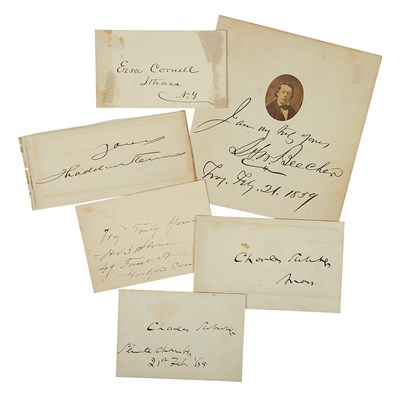 Ezra Cornell
Ithaca
N.Y.
I am very truly yours
H W Beecher
Troy, Feb, 21. 1859
Yours
Thaddeus Stevens
Very Truly Yours
H B Stowe
49 Forest St
Hartford Conn
Charles Sumner
Mass
Charles Sumner
Senate Chamber
21st Feb '69